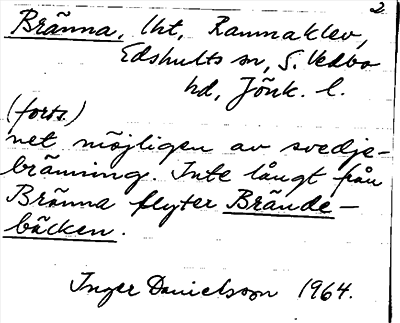 2
Bränna, lht, Ramnaklev,
Edshults sn, S. Vedbo
hd, Jönk. l.
(forts.)
net möjligen av svedje-
bränning. Inte långt från
Bränna flyter Brände-
bäcken.
Inger Danielsson 1964.